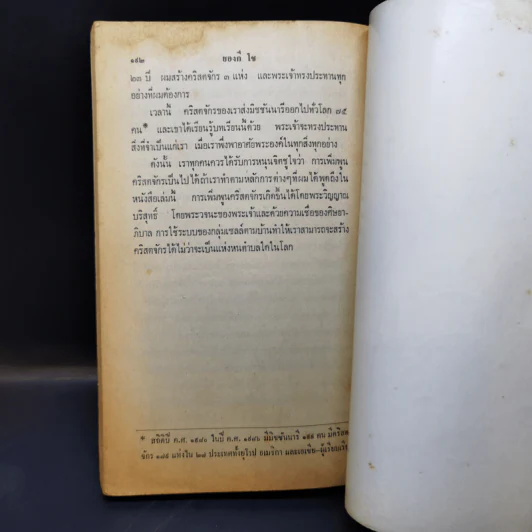 ๑๔๒ ยองกี โช
๒๓ ปี ผมสร้างคริสตจักร ๓ แห่ง และพระเจ้าทรงประทานทุก
อย่างที่ผมต้องการ
เวลานี้ คริสตจักรของเราส่งมิชชันนารีออกไปทั่วโลก ๗๕
คน* และเขาได้เรียนรู้บทเรียนนี้ด้วย พระเจ้าจะทรงประทาน
สิ่งที่จำเป็นแก่เรา เมื่อเราพึ่งพาอาศัยพระองค์ในทุกสิ่งทุกอย่าง
ดังนั้น เราทุกคนควรได้รับการหนุนจิตชูใจว่า การเพิ่มพูน
คริสตจักรเป็นไปได้ถ้าเราทำตามหลักการต่างๆที่ผมได้พูดถึงใน
หนังสือเล่มนี้ การเพิ่มพูนคริสตจักรเกิดขึ้นได้โดยพระวิญญาณ
บริสุทธิ์ โดยพระวจนะของพระเจ้าและด้วยความเชื่อของศิษยา-
ภิบาล การใช้ระบบของกลุ่มเซลล์ตามบ้านทำให้เราสามารถจะสร้าง
คริสตจักรได้ไม่ว่าจะเป็นแห่งหนตำบลใดในโลก
* สถิติปี ค.ศ. ๑๙๘๐ ในปี ค.ศ. ๑๙๘๖ มีมิชชันนารี ๑๙๙ คน มีคริสต
จักร ๑๘๙ แห่งใน ๒๘ ประเทศทั้งยุโรป อเมริกา และเอเชีย-ผู้เรียบเรียง